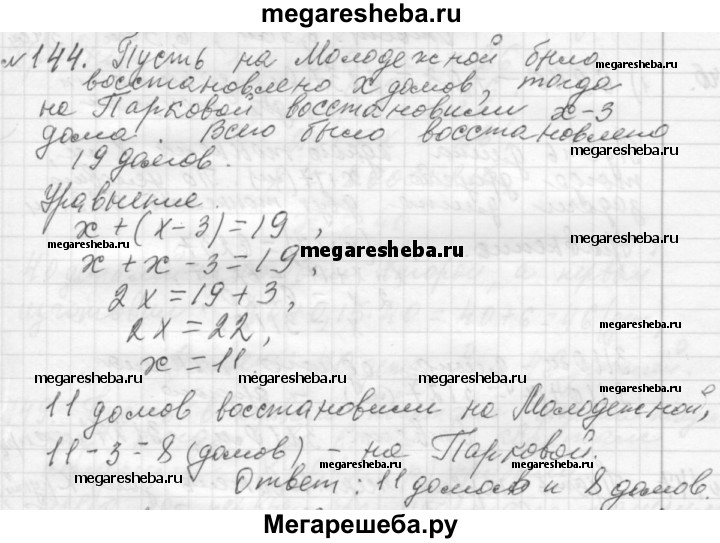 megaresheba.ru
№144. Пусть на Молодежной было
восстановлено x домов, тогда
на Парковой восстановили x-3
дома. Всего было восстановлено
megaresheba.ru
19 домов.
Уравнение.
x+(x-3)=19,
megaresheba.ru
megaresheba.ru
megaresheba.ru
x+x-3=19,
2x=19+3,
2x=22,
megaresheba.ru
x=11.
megaresheba.ru
megaresheba.ru
megaresheba.ru
11 домов восстановили на Молодежной,
11-3=8 (домов) - на Парковой.
megaresheba.ru
megaresheba.ru
Ответ: 11 домов и 8 домов.
Мегарешеба.ру